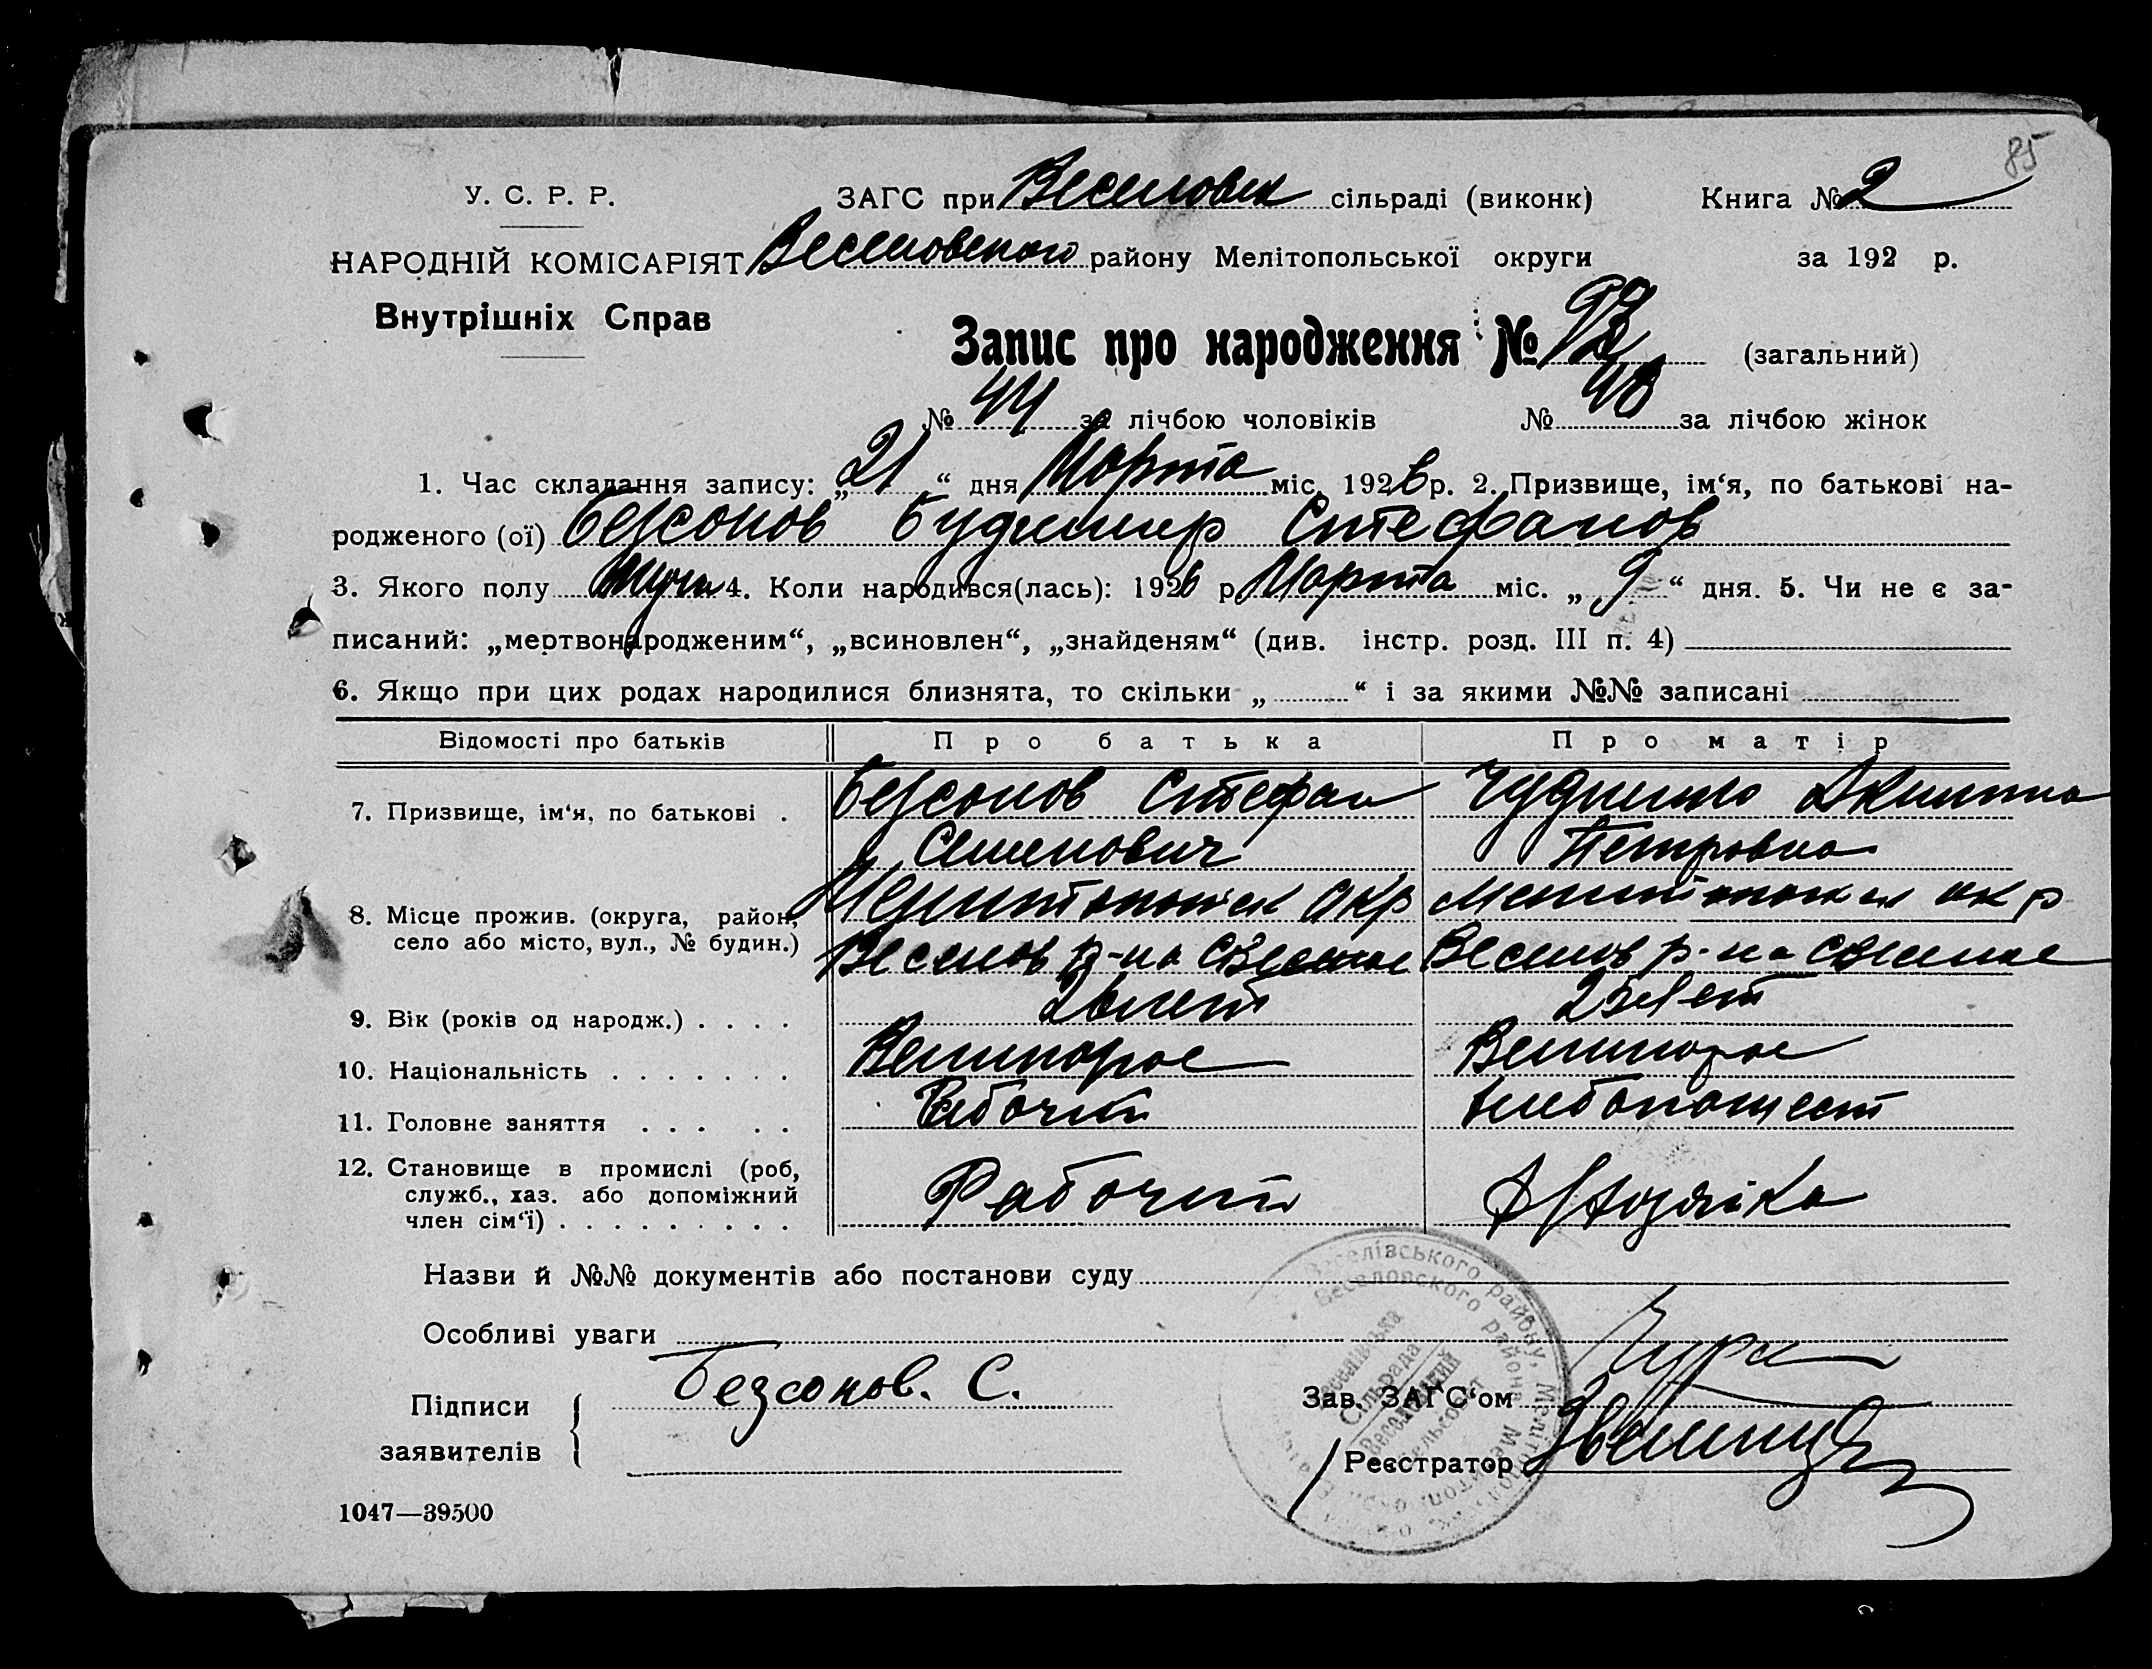 85
У. С. Р. Р.
ЗАГС при Веселовск сільраді (виконк)
Книга № 2
НАРОДНІЙ КОМІСАРІЯТ
Веселовского району Мелітопольської округи
за 192 р.
Внутрішніх Справ
Запис про народження № (загальний)
№ 44 за лічбою чоловіків
№ за лічбою жінок
1. Час складання запису: „21“ дня Марта міс. 1926 р. 2. Призвище, ім‘я, по батькові на-
родженого (ої) Безсонов Будимир Стефанов
3. Якого полу Муж 4. Коли народився(лась): 1926 р. Марта міс. „9“ дня. 5. Чи не є за-
писаний: „мертвонародженим“, „всиновлен“, „знайденям“ (див. інстр. розд. III п. 4)
6. Якщо при цих родах народилися близнята, то скільки „ “ і за якими №№ записані
Відомості про батьків
Про батька
Про матір
7. Призвище, ім‘я, по батькові .
Безсонов Стефан
Семенович
Петровна
8. Місце прожив. (округа, район,
село або місто, вул., № будин.)
Мелитопольск окр
Веселов р-на с Веселое
Мелитопольск окр
Веселов р-на с Веселое
9. Вік (років од народж.) . . . .
26 лет
25 лет
10. Національність . . . . . . .
Великорос
Великорос
11. Головне заняття . . . . .
Рабочий
хлебопашест
12. Становище в промислі (роб,
служб., хаз. або допоміжний
член сім‘ї) . . . . . . . . .
Рабочий
Хозяйка
Назви й №№ документів або постанови суду
Особливі уваги
Підписи
заявителів
Безсонов. С.
Зав. ЗАГС‘ом
Реєстратор
Веселівського району, Мелітоп
Веселовского района Мелитоп. окр.
Веселівська
Сільрада
Веселовский
сельсовет
1047—39500